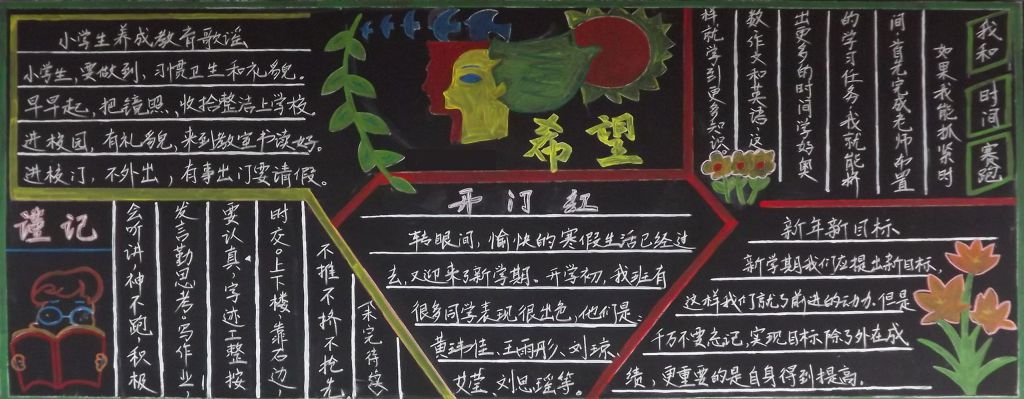 小学生养成教育歌谣
小学生，要做到，习惯卫生和礼貌。
早早起，把镜照，收拾整洁上学校。
进校园，有礼貌，来到教室书读好。
进校门，不外出，有事出门要请假。
希望
我和
时间
赛跑
如果我能抓紧时
间，首先完成老师布置
的学习任务，我就能挤
出更多的时间学好奥
数、作文和英语，这
样就学到更多知识
谨记
不推不挤不抢先
时交。上下楼靠右边，
要认真，字迹工整按
发言勤思考。写作业，
会听讲神不跑，积极
（未完待续
开门红
转眼间，愉快的寒假生活已经过
去，又迎来了新学期、开学初，我班有
很多同学表现很出色，他们是：
黄玮佳、王雨彤、刘琼、
艾莹、刘思瑶等。
新年新目标
新学期我们应提出新目标，
这样我们就了前进的动力。但是
千万不要忘记，实现目标除了外在成
绩，更重要的是自身得到提高。